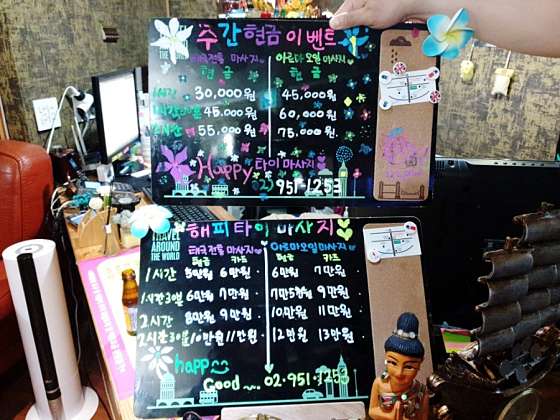 주간현금 이벤트
태국전통 마사지 아로마오일 마사지
현금 현금
1시간 30,000원 45,000원
1시간30분 45,000원 60,000원
2시간 55,000원 75,000원
Happy 타이 마사지
02) 951-1253
해피타이마사지
TRAVEL AROUND THE WORLD
태국전통 마사지 아로마오일 마사지
현금 카드 현금 카드
1시간 5만원 6만원 6만원 7만원
1시간30분 6만원 7만원 7만5천원 9만원
2시간 8만원 9만원 10만원 11만원
2시간30분 10만원 11만원 12만원 13만원
happ
Good 02.951.1253